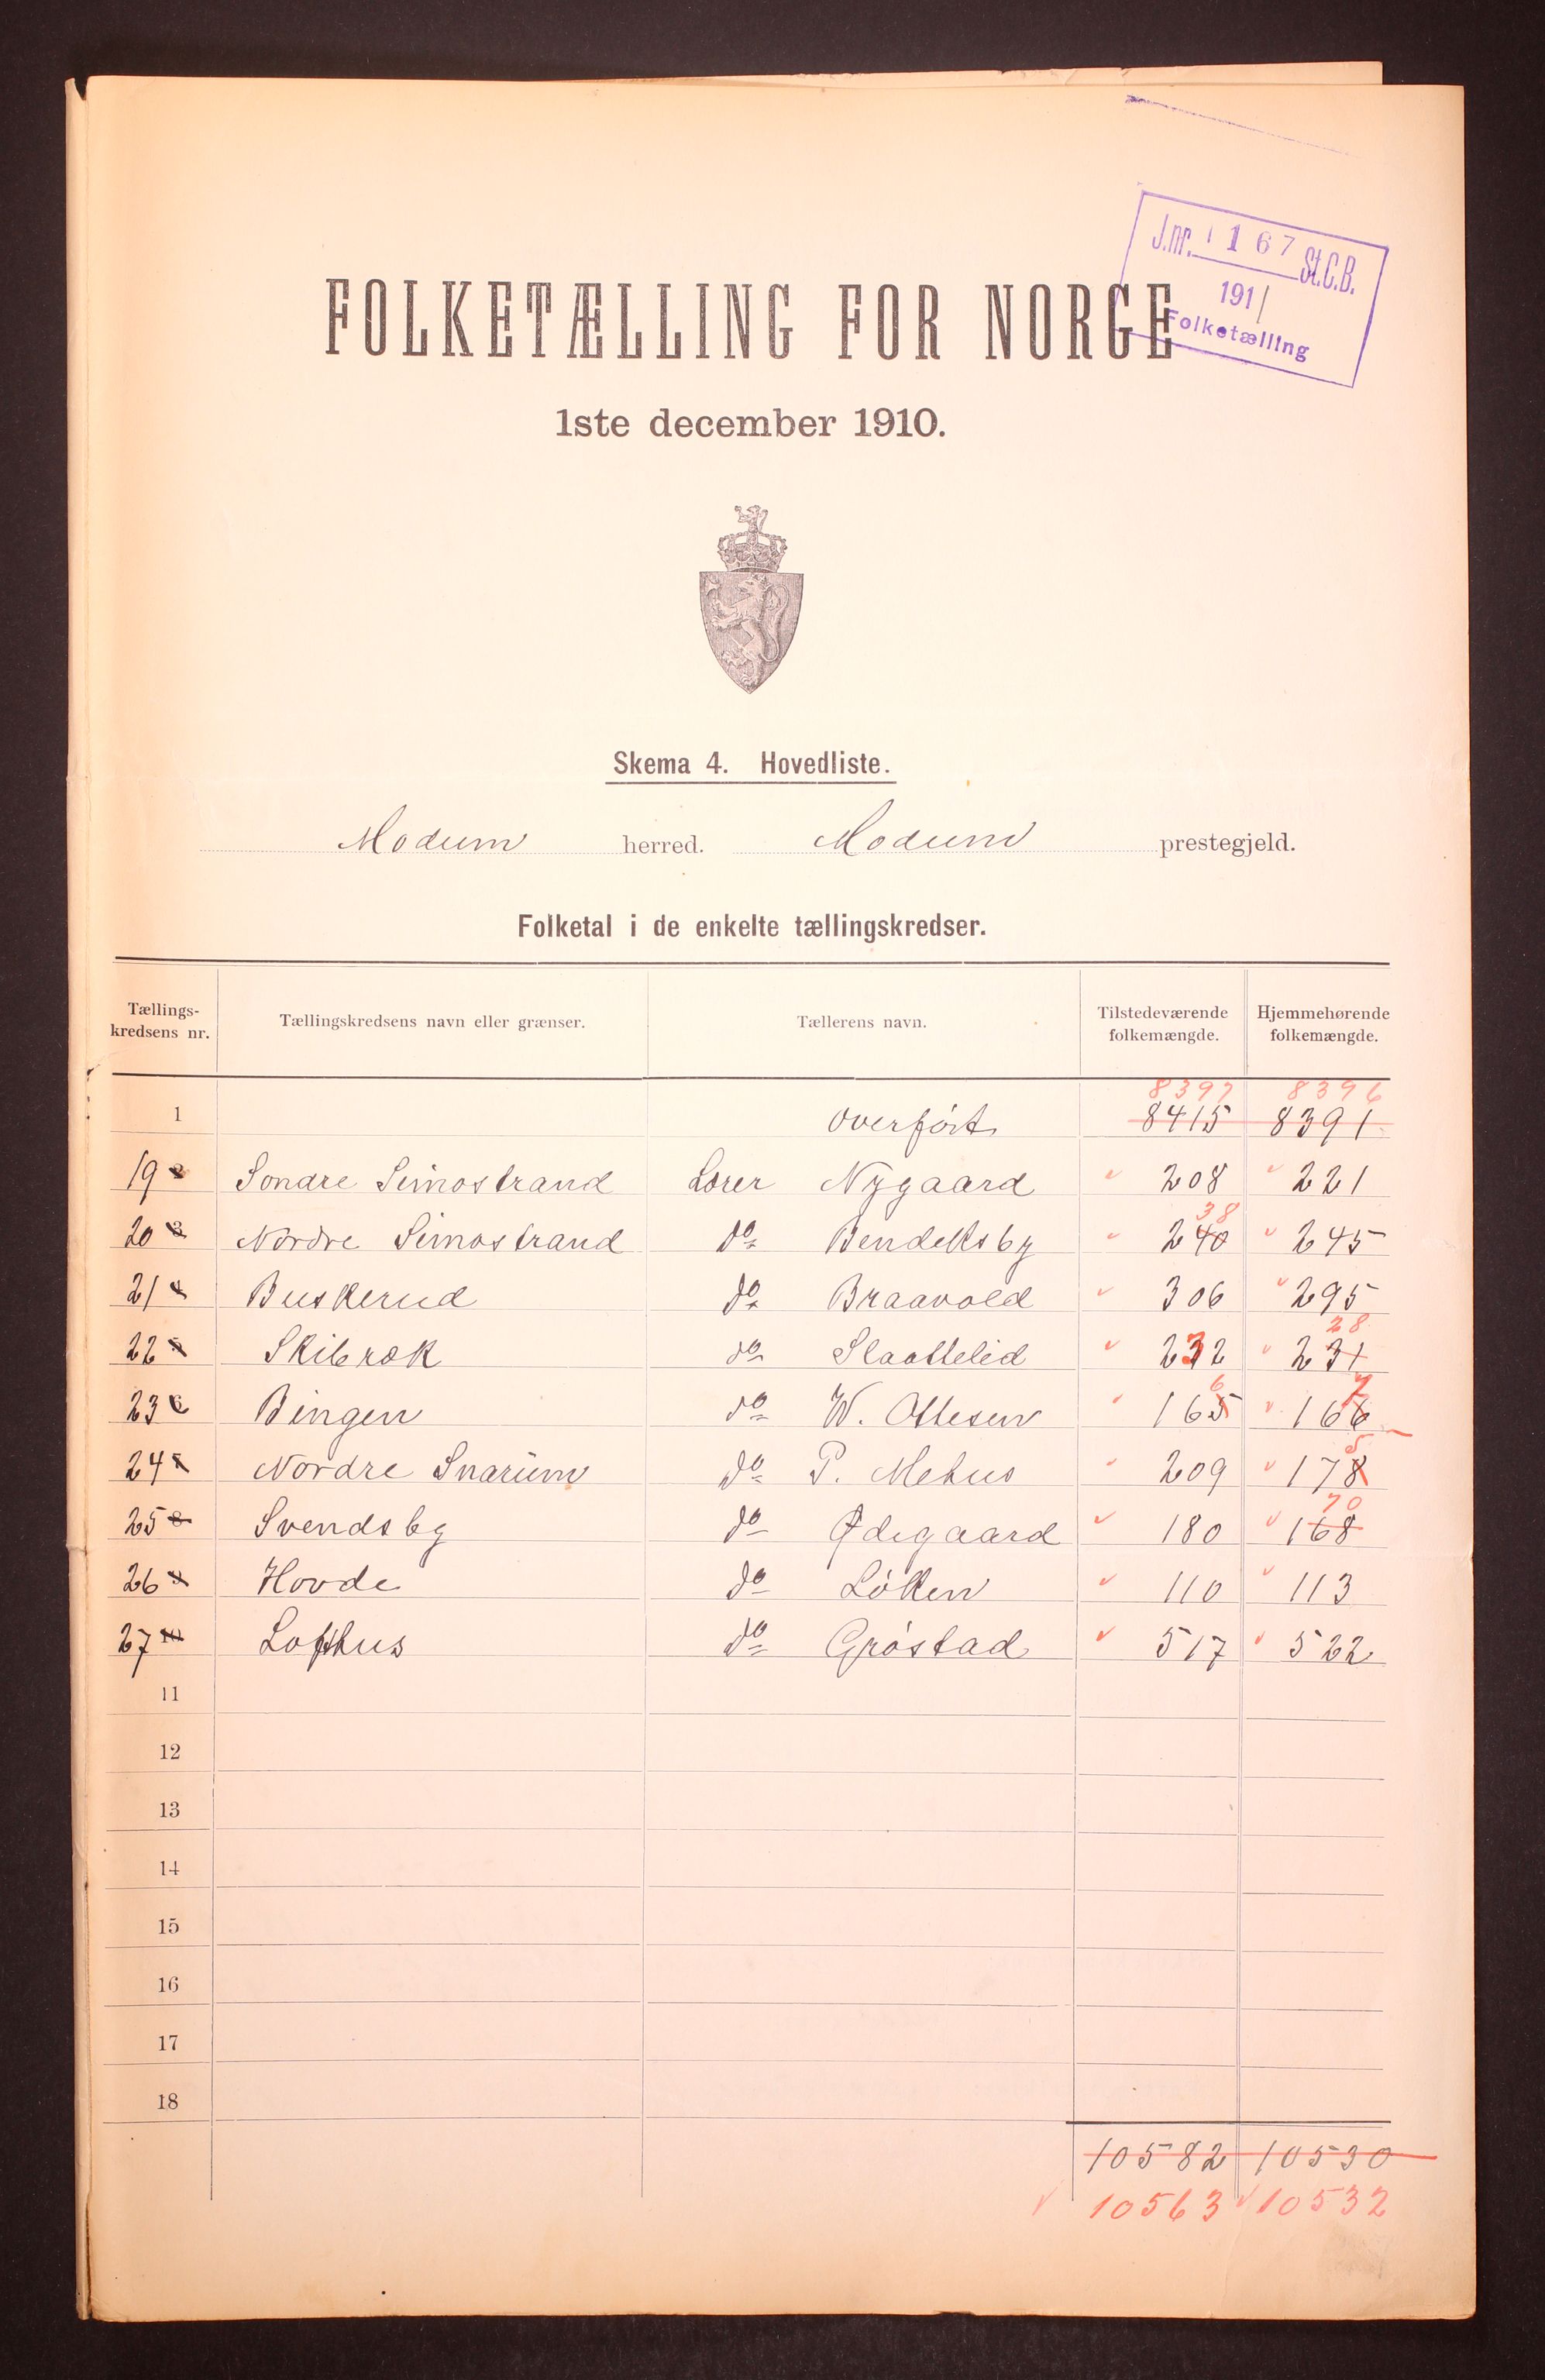 J.nr. 1167 St.C.B.
1911
Folketælling
FOLKETÆLLING FOR NORGE
1ste december 1910.
Skema 4. Hovedliste.
Modum herred. Modum prestegjeld.
Folketal i de enkelte tællingskredser.
Tællings-kredsens nr. Tællingskredsens navn eller grænser. Tællerens navn. Tilstedeværende folkemængde. Hjemmehørende folkemængde.
8397 8396
1 overført 8415 8391
19 2 Sondre Simostrand Lærer Nygaard 208 221
38
20 3 Nordre Simostrand do Bendeksby 240 245
21 4 Buskerud do Braavold 306 295
28
22 5 Skibræk do Slaattelid 232 231
6 7
23 6 Bingen do W. Ottesen 165 166
5
24 7 Nordre Snarum do P. Mehus 209 178
70
25 8 Svendsby do Ødegaard 180 168
26 9 Hovde do Løken 110 113
27 10 Lofthus do Grøstad 517 522
11
12
13
14
15
16
17
18
10582 10530
10563 10532